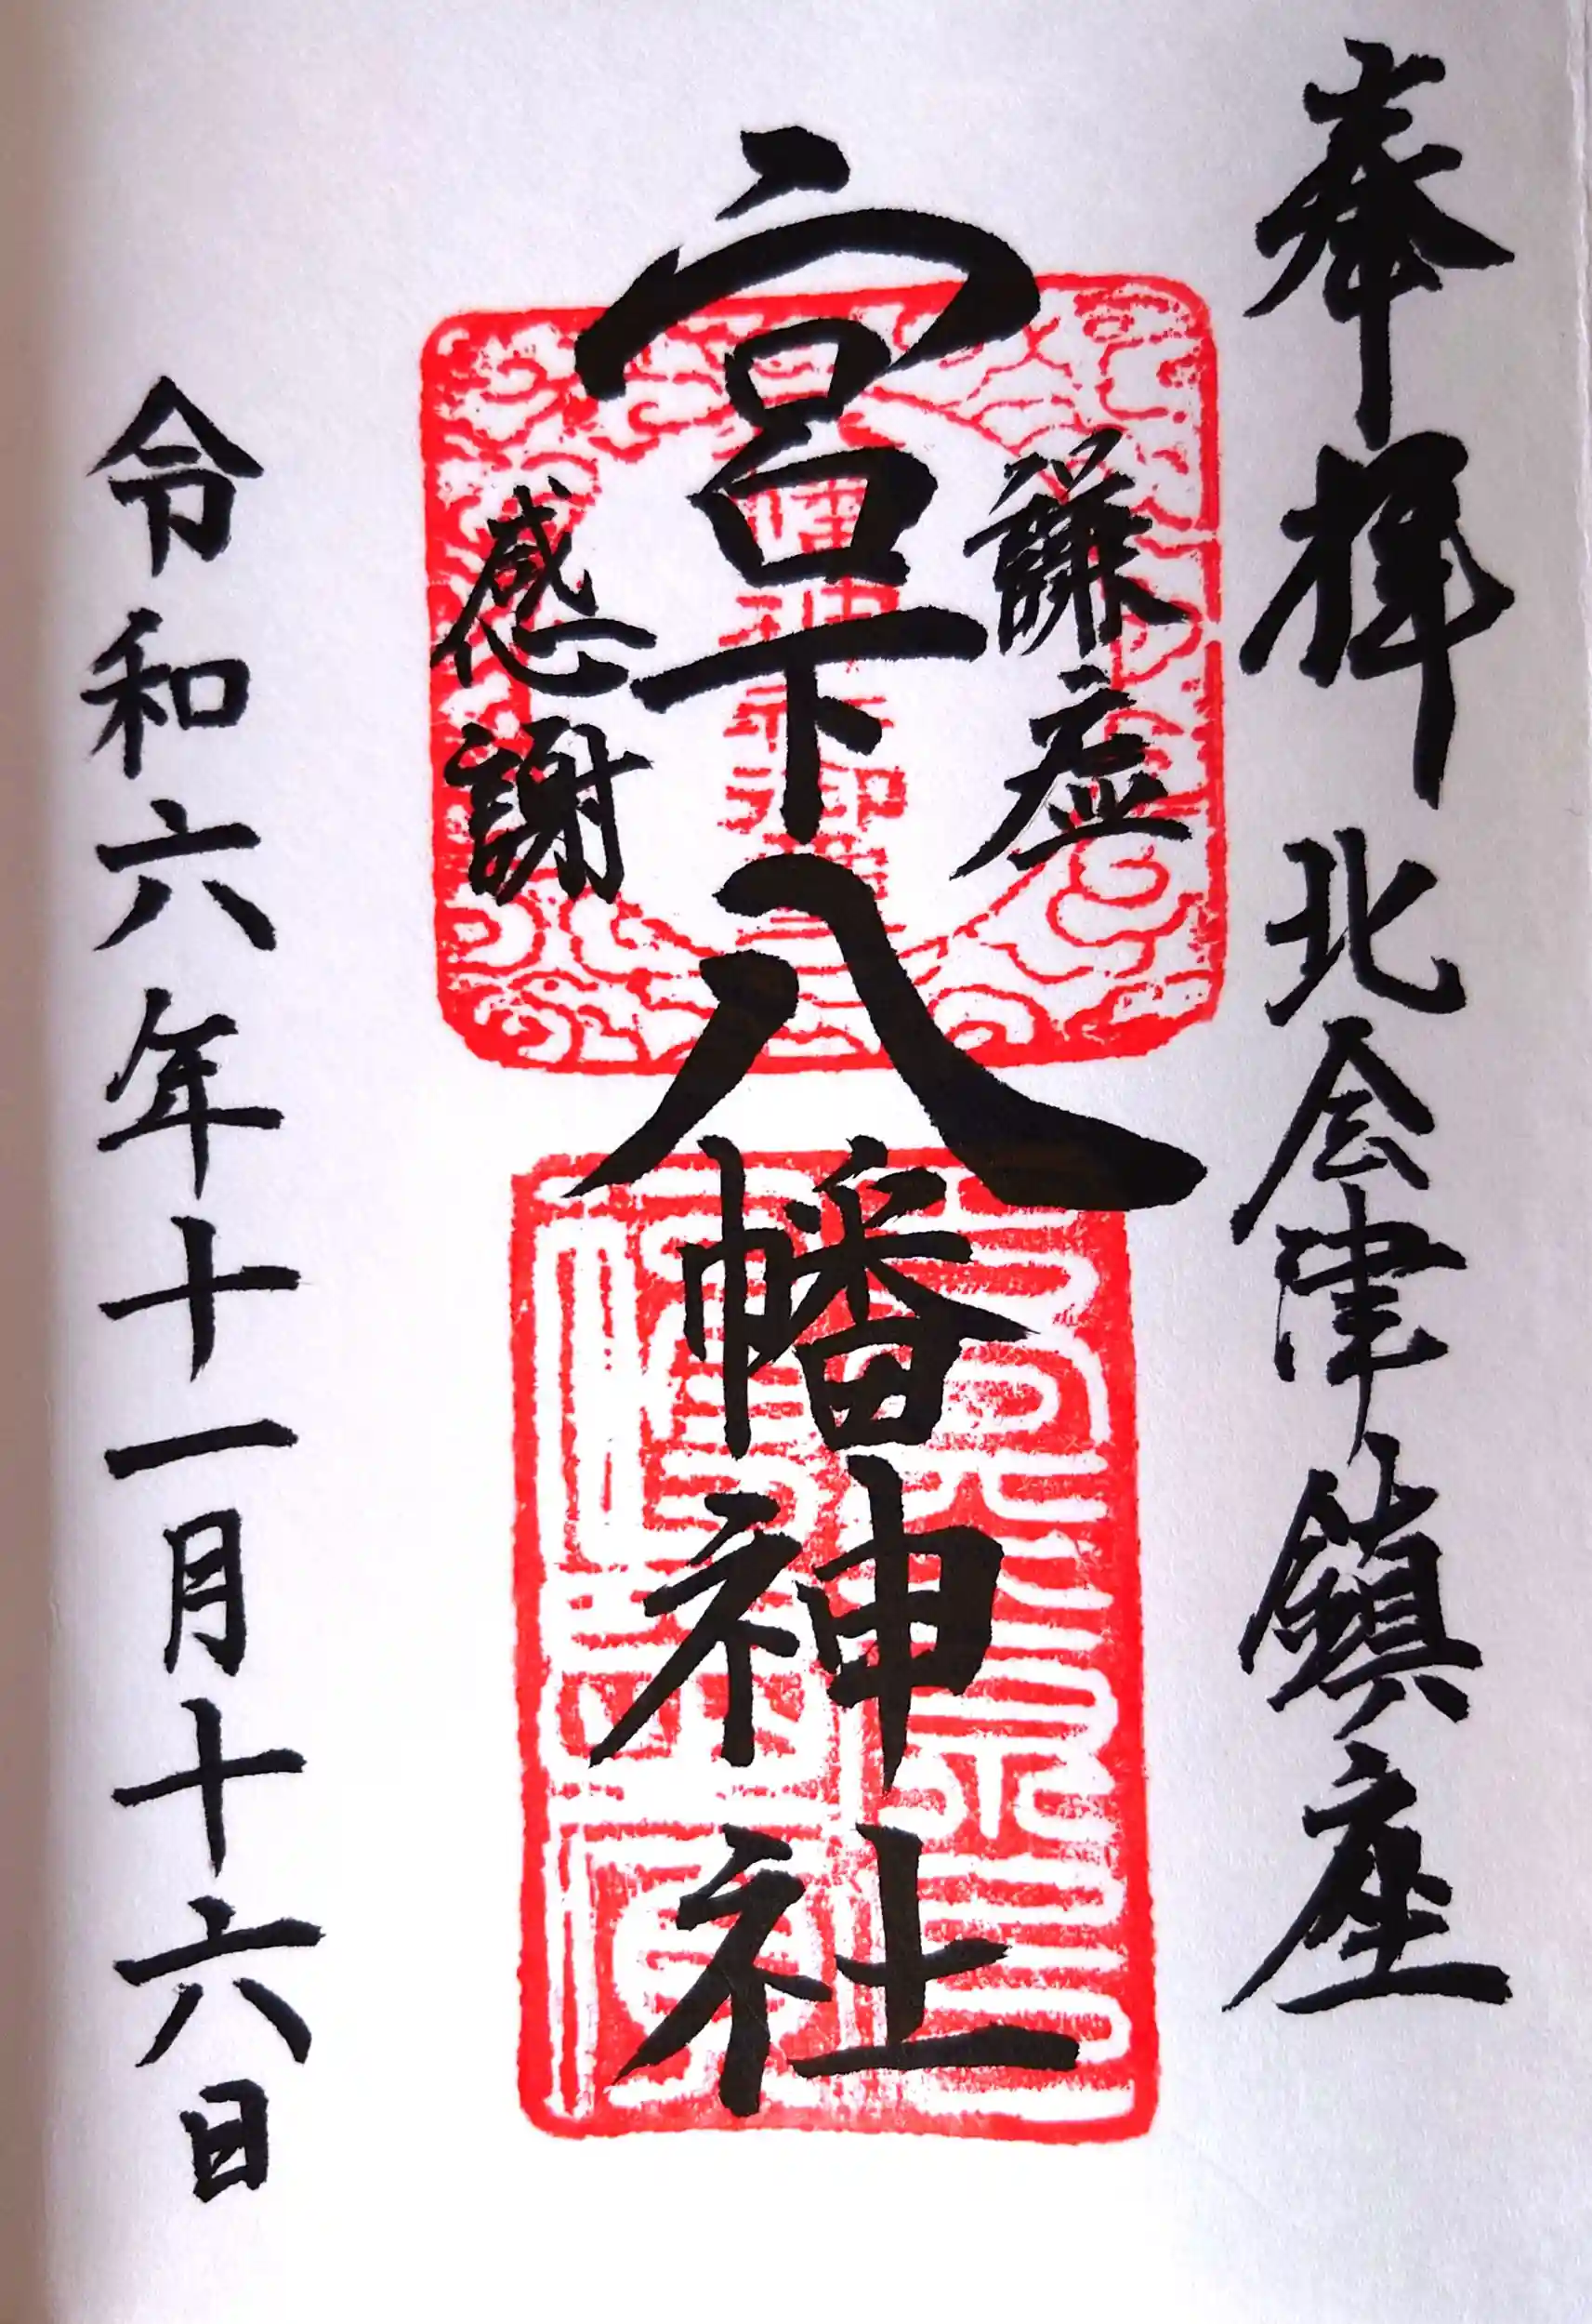 奉拝 北会津鎮座
謙虚
宮下八幡神社
感謝
令和六年十一月十六日